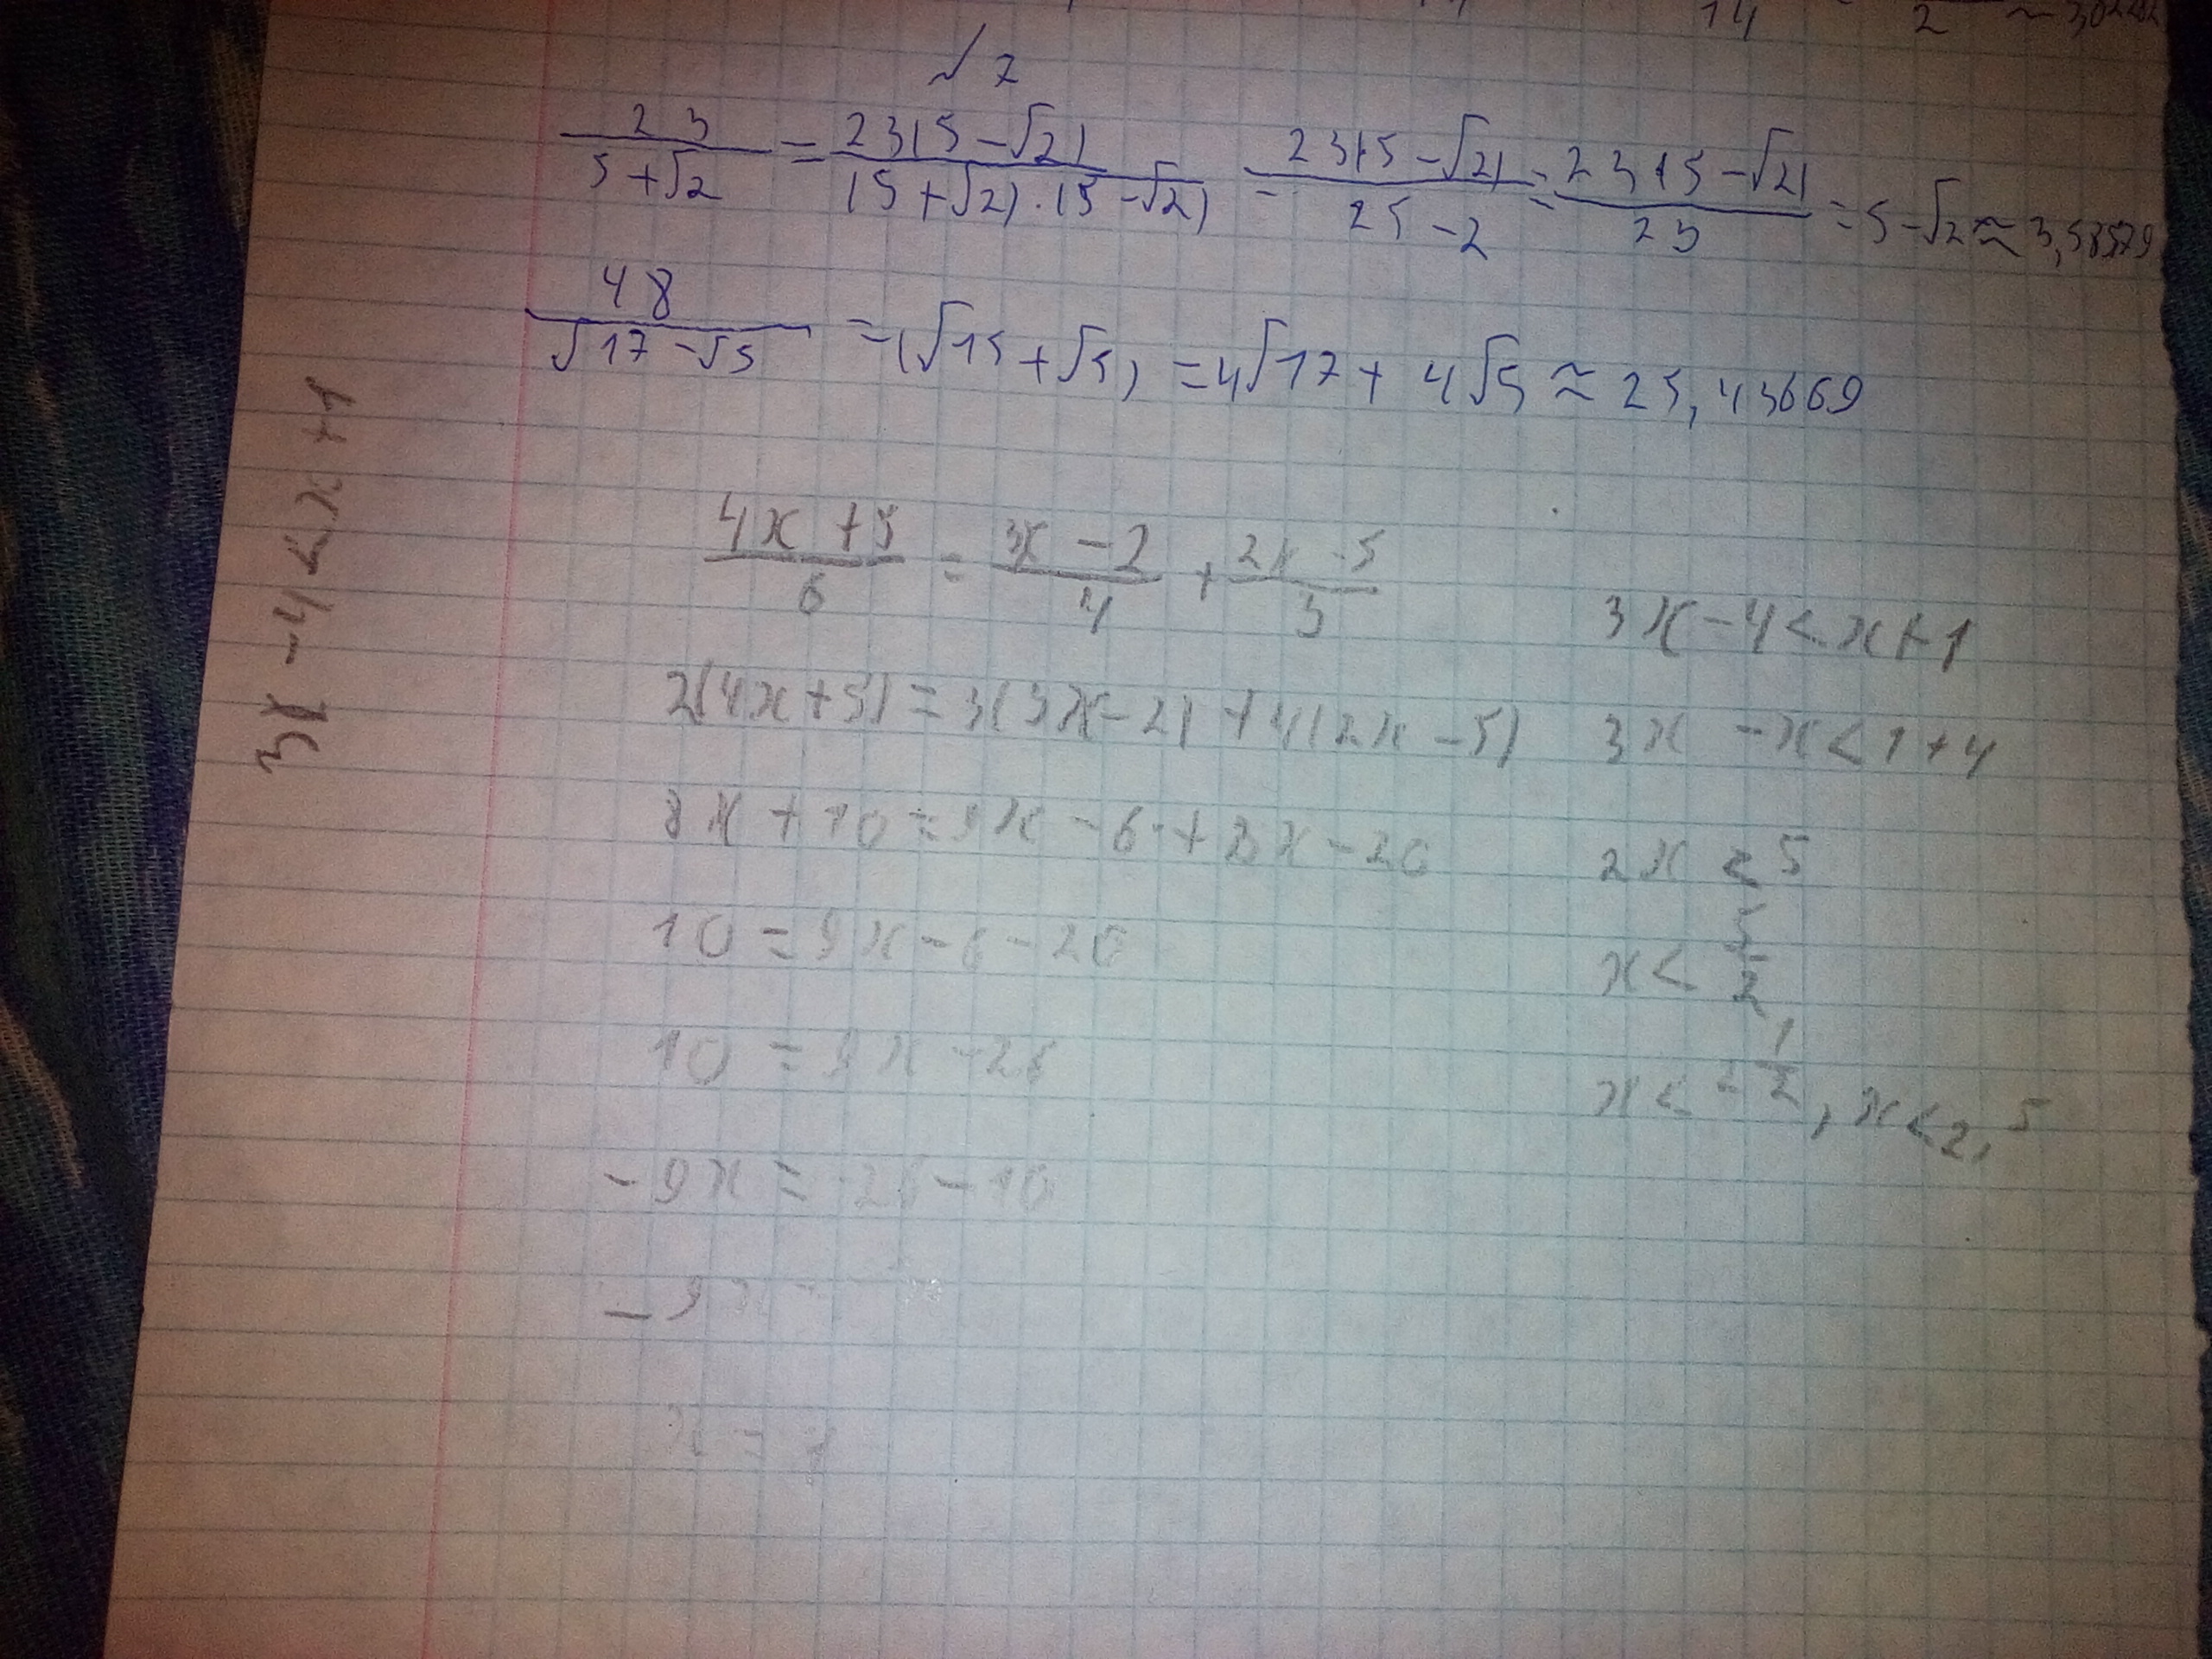 14 2 ≈ 302
√ 7
23/(5+√2) = 23(5-√2)/((5+√2)·(5-√2)) = 23(5-√2)/(25-2) = 23(5-√2)/23 = 5-√2 ≈ 3,58579
48/(√17-√5) = (√15+√5) = 4√17 + 4√5 ≈ 25,43669
3x-4<x+1
(4x+5)/6 = (3x-2)/4 + (2x-5)/3
2(4x+5) = 3(3x-2)+4(2x-5)
8x+10=9x-6+8x-20
10=9x-6-20
10=9x-26
-9x=-26-10
-9x
x=
3x-4<x+1
3x-x<1+4
2x<5
x<5/2
x<-1/2, x<2,5